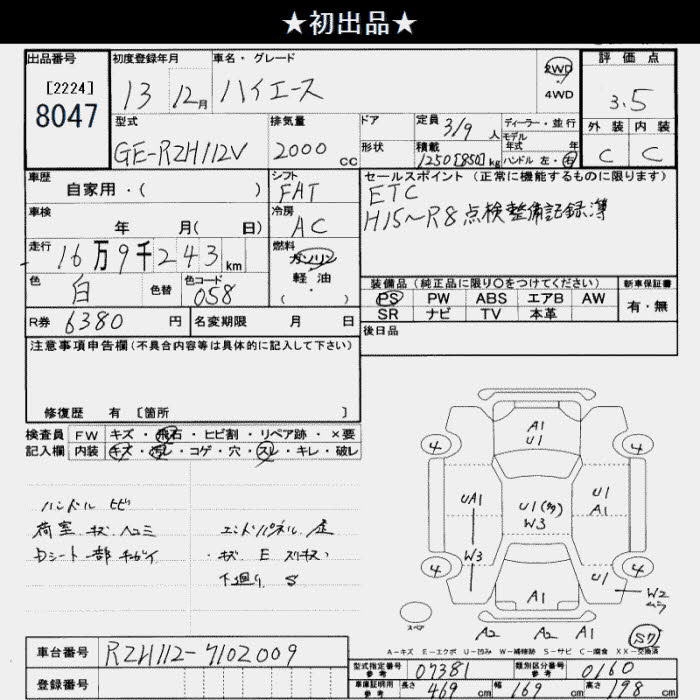 ★初出品★
出品番号
[2224]
8047
初度登録年月
13 12月
車名・グレード
ハイエース
2WD
4WD
評価点
3.5
外装 内装
C C
型式
GE-RZH112V
排気量
2000 cc
ドア
形状
定員 3/9 人
積載 1250[850] kg
ディーラー・並行
モデル年式 年
ハンドル 左・右
車歴
自家用・( )
シフト
FAT
セールスポイント(正常に機能するものに限ります)
ETC
H15〜R8点検整備記録簿
車検
年 月( 日)
冷房
AC
走行
16万9千243km
燃料
ガソリン
軽油
(・)
色
白
色替
色コード
058
装備品(純正品に限り○をつけてください)
新車保証書
PS PW ABS エアB AW
SR ナビ TV 本革
有・無
R券 6380 円
名変期限 月 日
後日品
注意事項申告欄(不具合内容等は具体的に記入して下さい)
修復歴 有 [箇所 ]
検査員 FW キズ・飛石・ヒビ割・リペア跡・×要
記入欄 内装 キズ・汚レ・コゲ・穴・スレ・キレ・破レ
ハンドル ヒビ
荷室 キズ ヘコミ
エンドパネル
キズ E
下廻り S
A1
U1
4 4
UA1
U1(多)
W3
U1
A1
W3
4 4
A1
U1
W2
ムラ
スペア
A2 A2 A1
S7
A-キズ E-エクボ U-凹み W-補修跡 S-サビ C-腐食 XX-交換済
車台番号 RZH112-7102009
登録番号
型式指定番号
参考
07381
類別区分番号
参考
0160
車庫証明用
参考
長さ 469 cm 幅 169 cm 高さ 198 cm